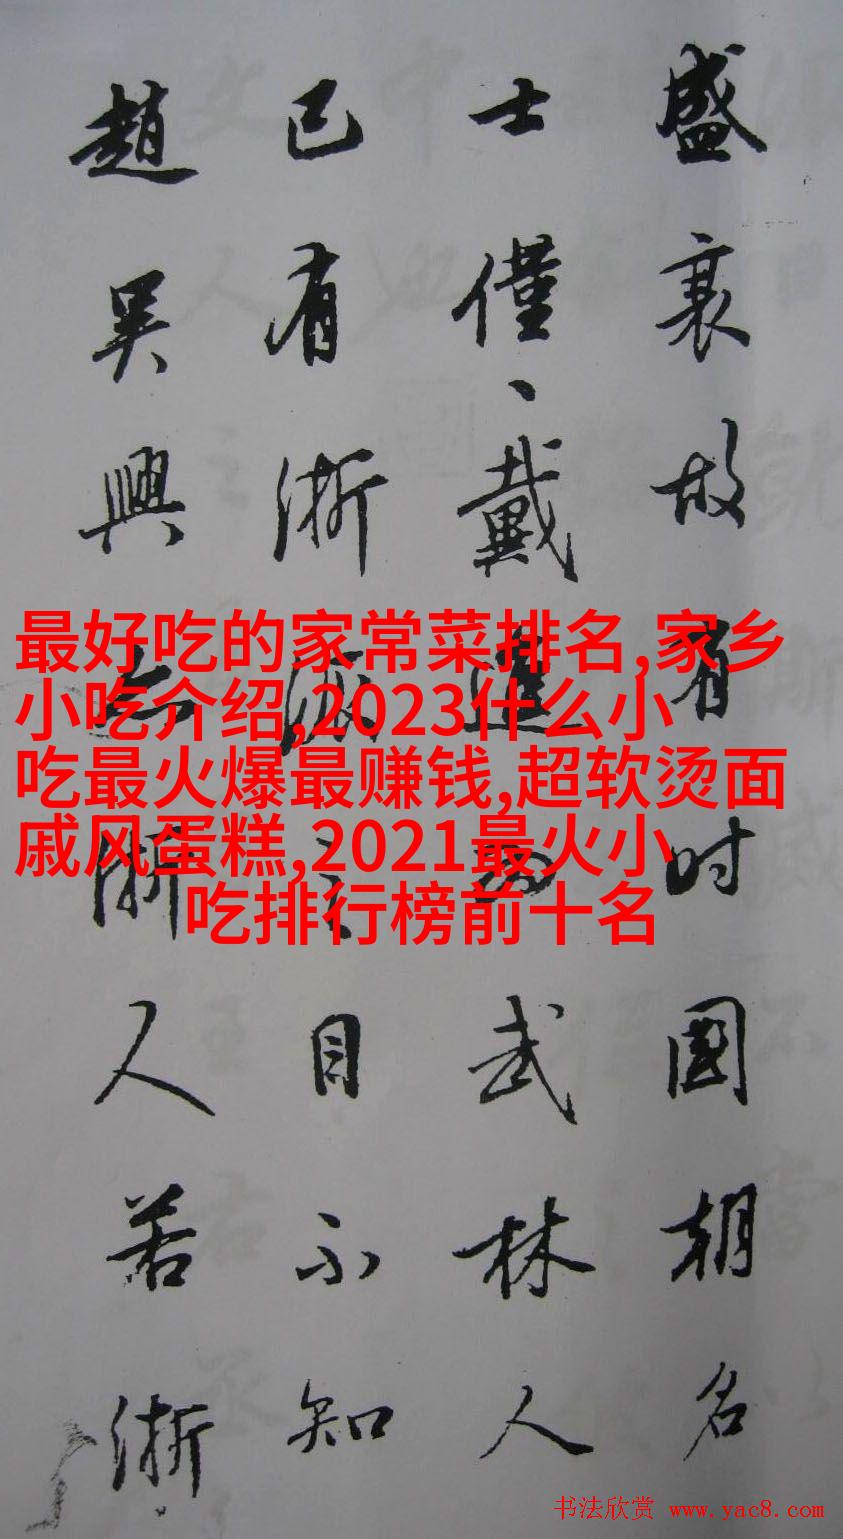 盛衰故有时國朝名
士僅、戴進武林人
已有浙派之目不知
趙吳興亦浙人若浙
最好吃的家常菜排名,家乡
小吃介绍,2023什么小
吃最火爆最赚钱,超软烫面
戚风蛋糕,2021最火小
吃排行榜前十名
书法欣赏 www.yac8.com